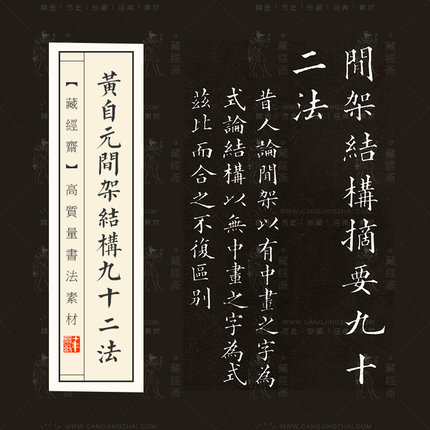 間架結構摘要九十
二法
昔人論間架以有中畫之字為
式論結構以無中畫之字為式
茲比而合之不復區別
黃自元間架結構九十二法
【藏經齋】高質量書法素材
精选｜历史｜珍藏｜经典｜素材
藏經斎
WWW.CANGJINGZHAI.COM